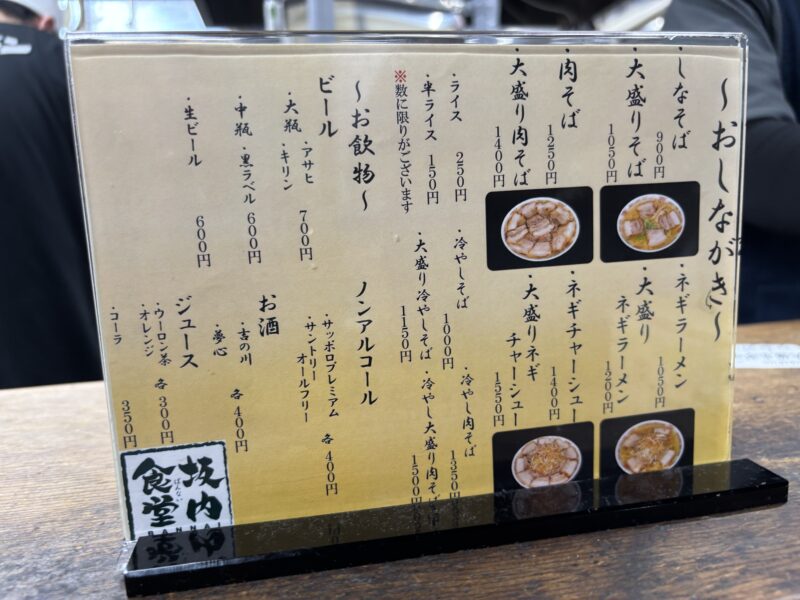 〜おしながき〜
・しなそば
900円
・大盛りそば
1050円
・肉そば
1250円
・大盛り肉そば
1400円
・ネギラーメン
1050円
・大盛り
ネギラーメン
1200円
・ネギチャーシュー
1400円
・大盛りネギ
チャーシュー
1550円
・ライス
250円
・半ライス
150円
※数に限りがございます
・冷やしそば
1000円
・大盛り冷やしそば
1150円
・冷やし肉そば
1350円
・冷やし大盛り肉そば
1500円
〜お飲物〜
ビール
・大瓶
・アサヒ
・キリン
700円
・中瓶
・黒ラベル
600円
・生ビール
600円
ノンアルコール
・サッポロプレミアム
・サントリー
オールフリー
各400円
お酒
・吉の川
・夢心
各400円
ジュース
・ウーロン茶
・オレンジ
各300円
・コーラ
350円
坂内
食堂
ばんない
BANNAI